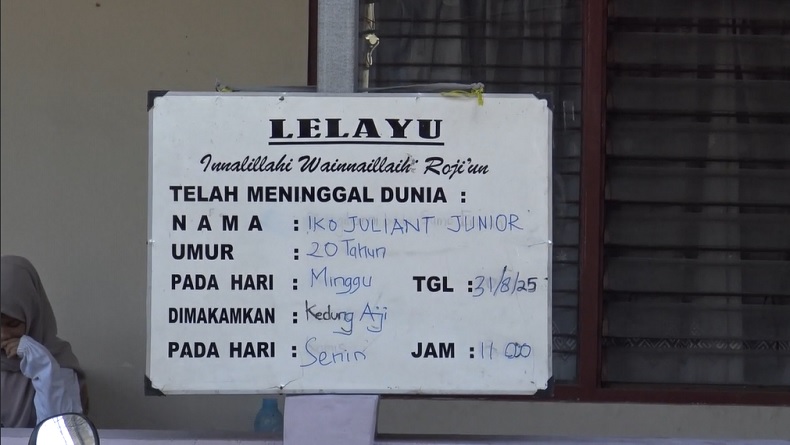 LELAYU
Innalillahi Wainnaillaihi Roji'un
TELAH MENINGGAL DUNIA :
NAMA : IKO JULIANT JUNIOR
UMUR : 20 Tahun
PADA HARI : Minggu TGL : 31/8/25
DIMAKAMKAN : Kedung Aji
PADA HARI : Senin JAM : 11 00